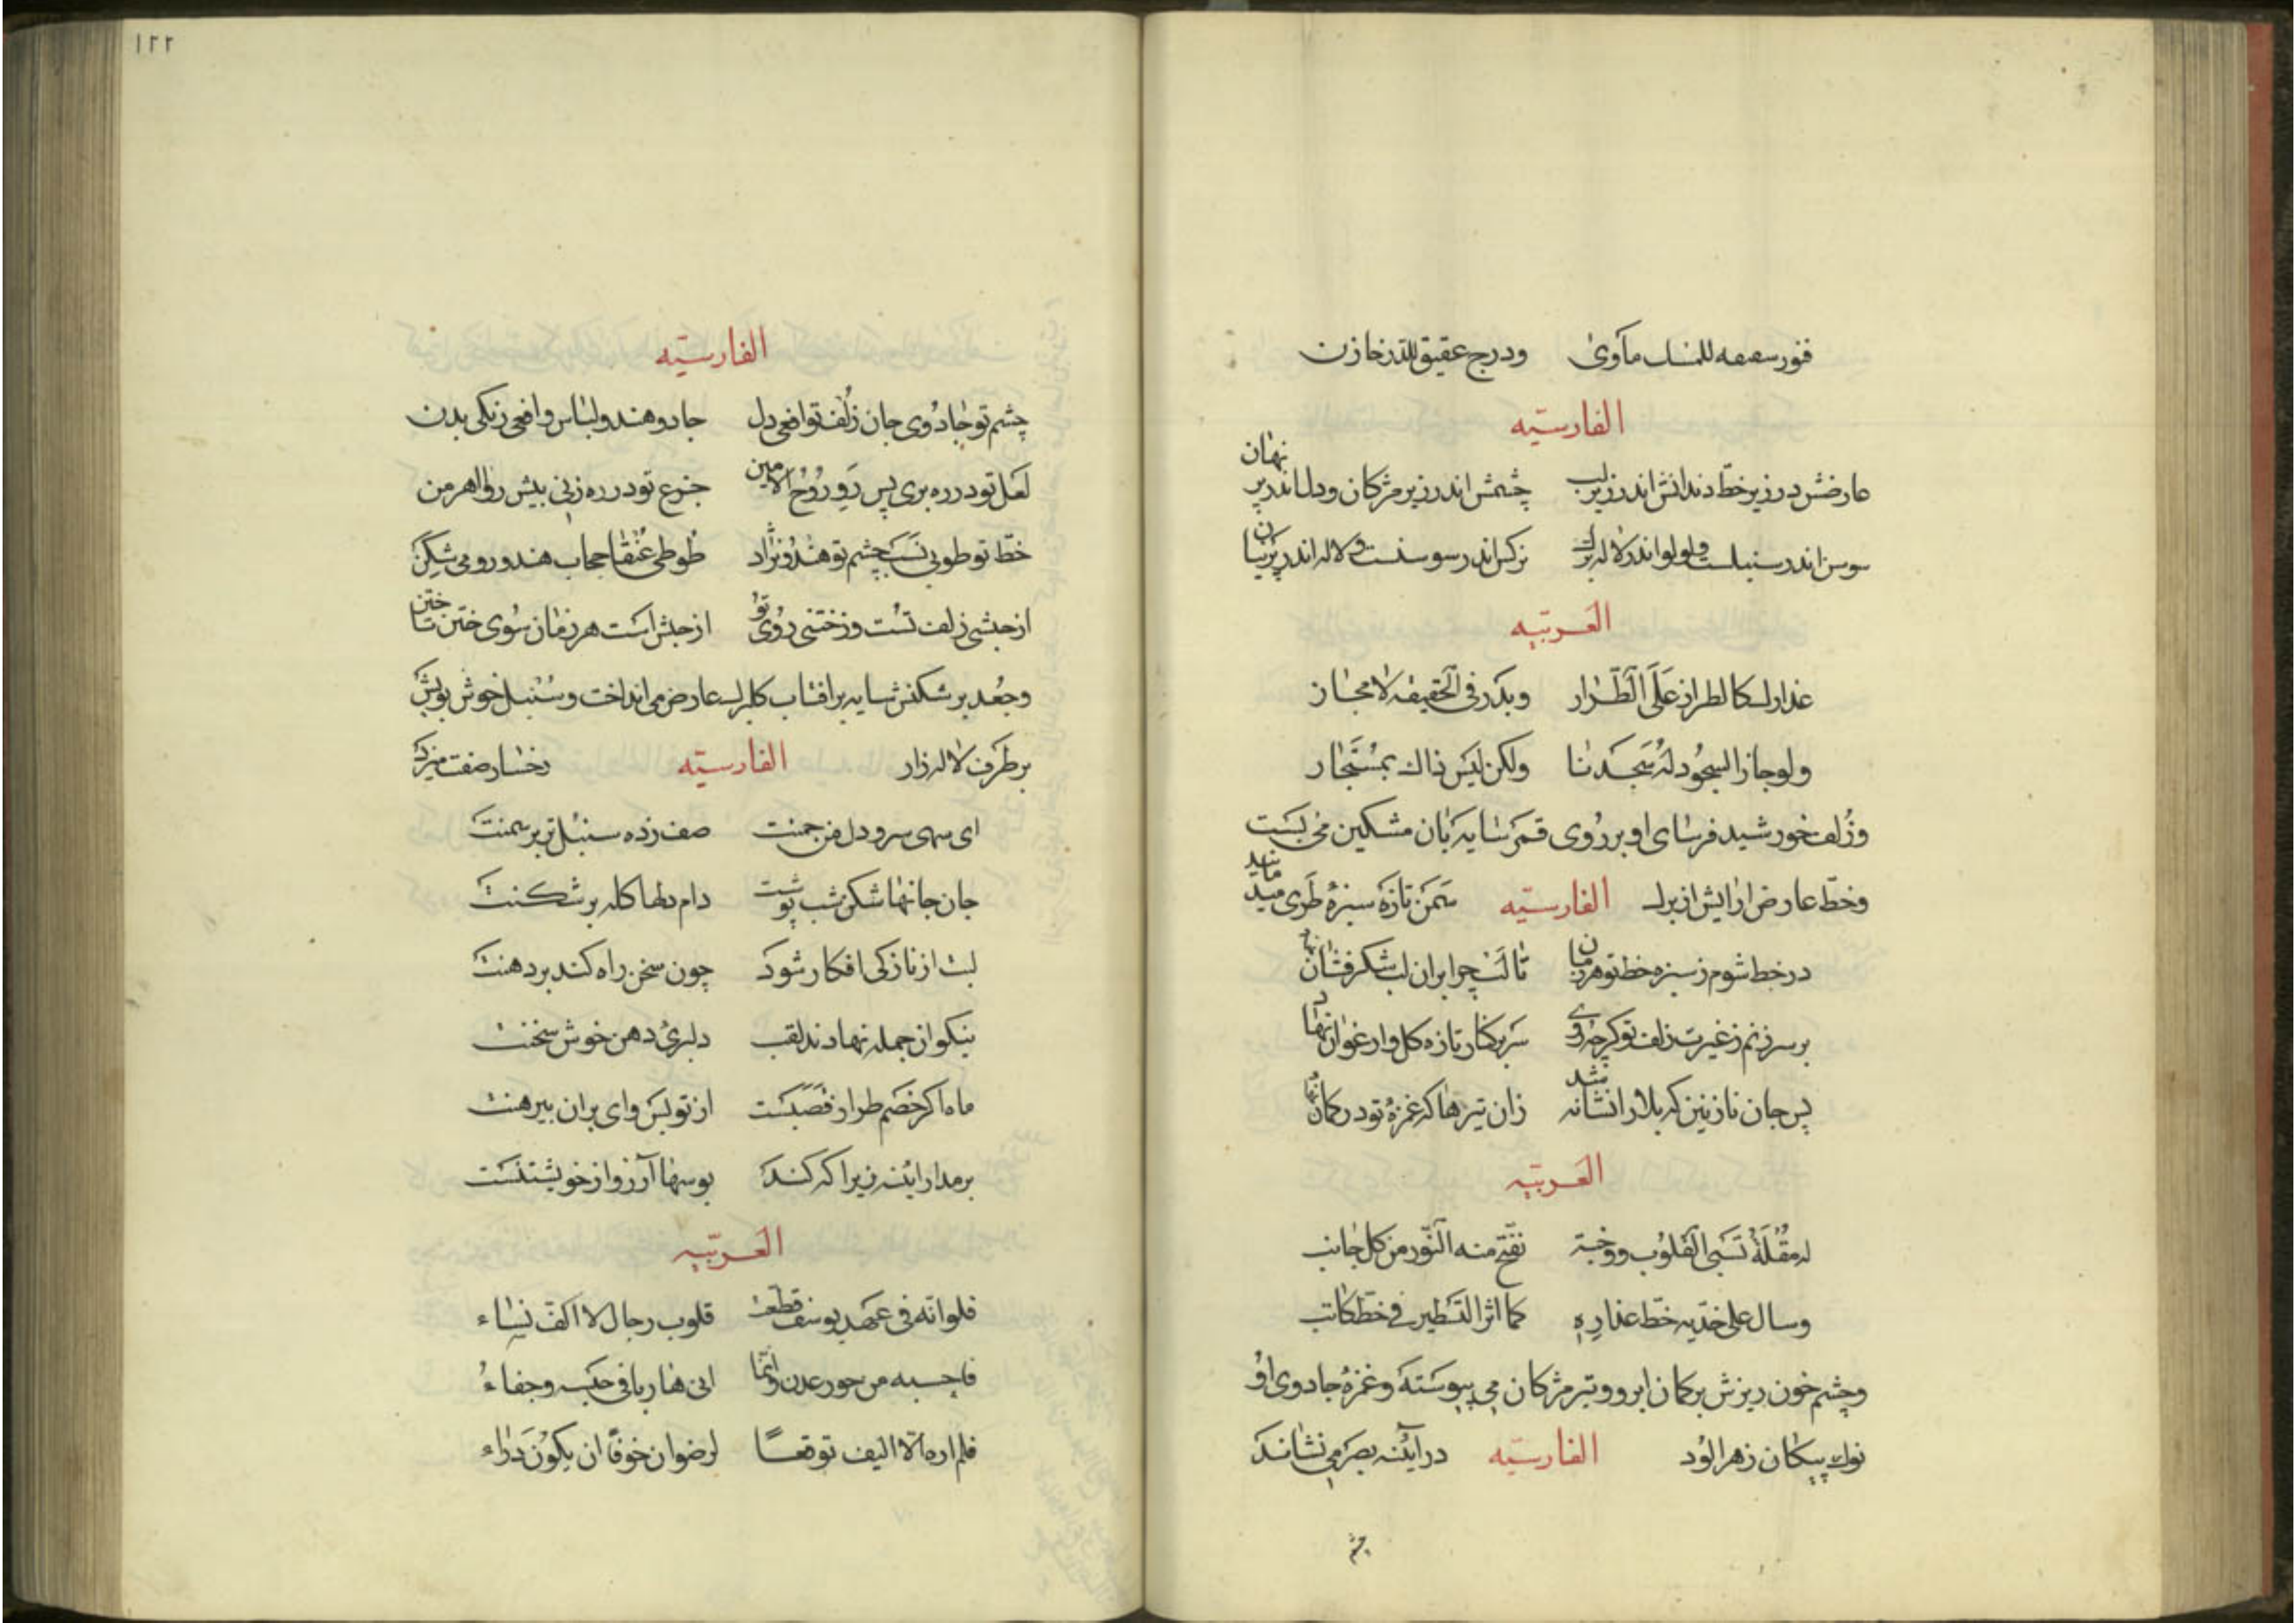 ودرج عقیق للدر خازن
الفارسیّه
عارضش در زیر خطّ دندانش اندر زیر لب چشمش اندر زیر مژکان ودل اندر بر نهان
سوسن اندر سنبلست ولولو اندر لاله برك نرکس اندر سوسنست و لاله اندر پرنیان
العربیّه
عذارك کالطراز عَلَی الطّراز وبدر فی الحقیقه لامجاز
ولو جاز السجُود لهُ سَجَدنا ولکن لیَس ذاك بمُستَجاز
وزُلف خورشید فرسای او بر رُوی قمَر سَایه بَان مشکین می بست
وخطّ عارض ارایش از برك الفارسیّه سَمَن تازَه سبزهٔ طَری میدمانید
در خط شوم ز سبزه خط تو هر زمان تا لب چرا بران لب شکر فشان نهاد
بر سر زنم ز غیرت زلف تو کرچه روی سَر بر کنار تازه کل وارغوان نهاد
پس جان نازنین که بلا را نشانه شد زان تیرها که غمزهٔ تو در کمان نهاد
العَربیّه
له مُقلَةٌ تَسَبی القلوُب ووجنة تفتّح منه النّور من کل جانب
وسال علی خدّیه خطّ عذارِه کما اثر التسطیر فی خطّ کاتب
وچشم خون ریزش بر کمان ابرو وتیر مژکان می پیوسَته وغمزهٔ جادوی اوُ
نوك پیکان زهر الوُد الفارسیّه در آینه بصَر می نشاندَ
چشم
١٢٢
الفارسیّه
چشم تو جادُوی جان زُلف تو افعی دل جادو هندو لباس وافعی زنکی بدن
لعَل تو در ره بری پس رَوِ رُوُح الامین جزع تو در ره زنی بیش رو اهرمن
خطّ تو طوبی نَسَب چشم تو هندُو نژاد طُوطی عُنقا حجاب هندو رومی شکِن
از حبشی زلف تسُت وز ختنی روُی توُ از حبش اَست هر زمان سُوی ختن تا ختن
وجُعد بر شکنش سایه بر افتاب کلبرك عارض می انداخت وسُنبل خوش بویش
بر طرَف لاله زار الفارسیّه رخسار صفت میزد
ای سهی سرو دل من چمنت صف زده سنبل تر بر سمنت
جان جانها شکن شب پوشت دام دلها کله بر شکنت
لبت از نازکی افکار شوَد چون سخن راه کند بر دهنت
نیکوان جمله نهادند لقب دلبریٔ دهن خوش سخنت
ماه اکر خصَم طراز قصَبسَت از تو بسَ وای بران پیرهنت
بر مدار اینَه زیرا که کندَ بوسها آرزو از خویشتنسَت
العَربّیه
فلو انّه فی عهد یوسف قطعت قلوب رجال لا اکفّ نساء
فاحسبه من حور عدن وانّما اتی هاربا فی وجفاءُ
فلم اره الّا الیف توقعًا لرضوان خوفًا ان یکوُنَ وراء